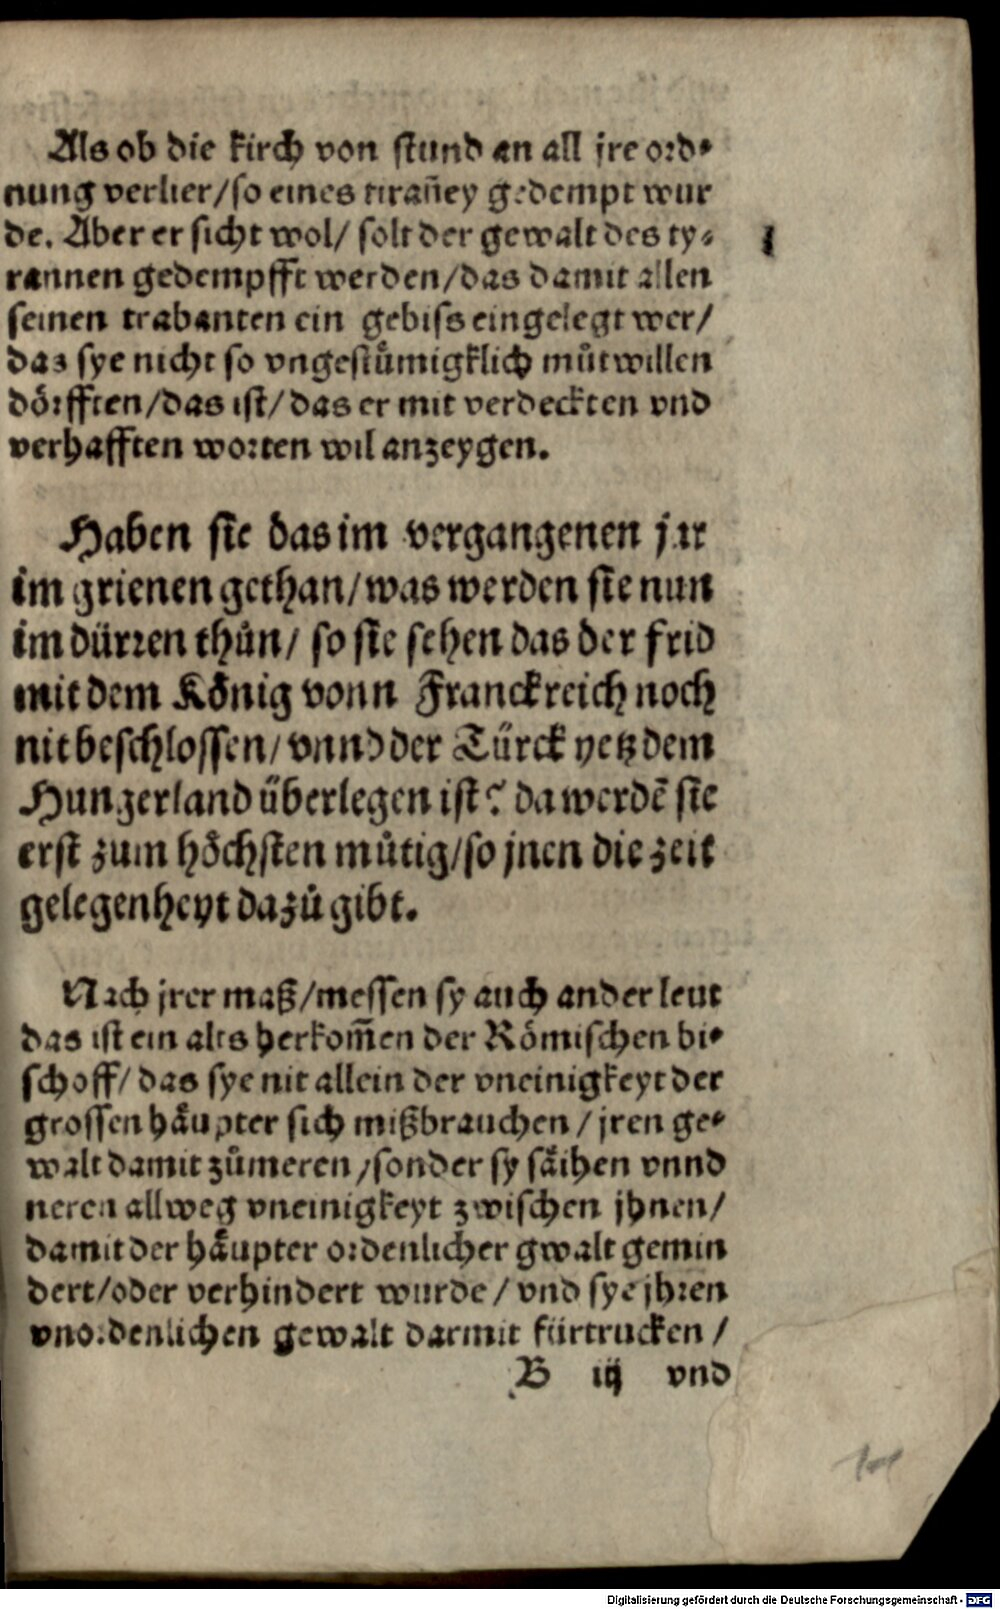 Als ob die kirch von stund an all jre ord⸗
nung verlier/so eines tirañey gedempt wur
de. Aber er sicht wol/ solt der gewalt des ty⸗
rannen gedempfft werden/das damit allen
seinen trabanten ein gebiss eingelegt wer/
das sye nicht so vngestuͤmigklich muͤtwillen
doͤrfften/das ist/das er mit verdeckten vnd
verhafften worten wil anzeygen.
Haben sie das im vergangenen jar
im grienen gethan/was werden sie nun
im dürren thuͦn/ so sie sehen das der frid
mit dem Koͤnig vonn Franckreich noch
nit beschlossen/vnnd der Türck yetz dem
Hungerland überlegen ist? da werdē sie
erst zum hoͤchsten muͤtig/so jnen die zeit
gelegenheyt dazuͦ gibt.
Nach jrer maß/messen sy auch ander leut
das ist ein alts herkom̃en der Roͤmischen bi⸗
schoff/das sye nit allein der vneinigkeyt der
grossen haͤupter sich mißbrauchen/jren ge⸗
walt damit zuͦmeren/sonder sy saͤihen vnnd
neren allweg vneinigkeyt zwischen jhnen/
damit der haͤupter ordenlicher gwalt gemin
dert/oder verhindert wurde/vnd sye jhren
vnordenlichen gewalt darmit fürtrucken/
B iij vnd
Digitalisierung gefördert durch die Deutsche Forschungsgemeinschaft - DFG